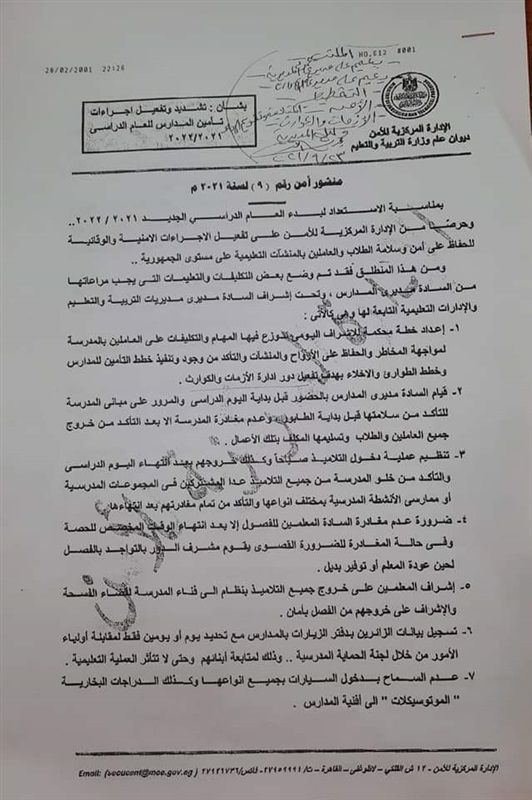 28/02/2001 22:26
NO.613 #001
الإدارة المركزية للأمن
ديوان عام وزارة التربية والتعليم
بشأن : تشديد وتفعيل اجراءات
تأمين المدارس للعام الدراسى
٢٠٢٢/٢٠٢١
منشور أمن رقم (٩) لسنة ٢٠٢١ م
بمناسبة الاستعداد لبدء العام الدراسي الجديد ٢٠٢١ / ٢٠٢٢ ..
وحرصاً من الإدارة المركزية للأمن على تفعيل الاجراءات الامنية والوقائية
للحفاظ على أمن وسلامة الطلاب والعاملين بالمنشآت التعليمية على مستوى الجمهورية ..
ومن هذا المنطلق فقد تم وضع بعض التكليفات والتعليمات التى يجب مراعاتها
من السادة مديرى المدارس ، وتحت إشراف السادة مديرى مديريات التربية والتعليم
والإدارات التعليمية التابعة لها وهى كالآتى :
١- إعداد خطة محكمة للإشراف اليومى توزع فيها المهام والتكليفات على العاملين بالمدرسة
لمواجهة المخاطر والحفاظ على الأرواح والمنشآت والتأكد من وجود وتنفيذ خطط التأمين للمدارس
وخطط الطوارئ والاخلاء بهدف تفعيل دور ادارة الأزمات والكوارث .
٢- قيام السادة مديرى المدارس بالحضور قبل بداية اليوم الدراسى والمرور على مبانى المدرسة
للتأكد من سلامتها قبل بداية الطابور وعدم مغادرة المدرسة الا بعد التأكد من خروج
جميع العاملين والطلاب وتسليمها المكلف بتلك الأعمال .
٣- تنظيم عملية دخول التلاميذ صباحاً وكذلك خروجهم بعد انتهاء اليوم الدراسى
والتأكد من خلو المدرسة من جميع التلاميذ عدا المشتركين فى المجموعات المدرسية
أو ممارسى الأنشطة المدرسية بمختلف انواعها والتأكد من تمام مغادرتهم بعد انتهاءها .
٤- ضرورة عدم مغادرة السادة المعلمين للفصول إلا بعد انتهاء الوقت المخصص للحصة
وفى حالة المغادرة للضرورة القصوى يقوم مشرف الدور بالتواجد بالفصل
لحين عودة المعلم أو توفير بديل .
٥- إشراف المعلمين على خروج جميع التلاميذ بنظام الى فناء المدرسة لقضاء الفسحة
والإشراف على خروجهم من الفصل بأمان .
٦- تسجيل بيانات الزائرين بدفتر الزيارات بالمدارس مع تحديد يوم أو يومين فقط لمقابلة أولياء
الأمور من خلال لجنة الحماية المدرسية .. وذلك لمتابعة أبنائهم وحتى لا تتأثر العملية التعليمية .
٧- عدم السماح بدخول السيارات بجميع انواعها وكذلك الدراجات البخارية
" الموتوسيكلات " الى أفنية المدارس .
الإدارة المركزية للأمن – ١٢ ش الفلكي – لاظوغلى – القاهرة – ت/ ٢٧٩٥٩٩٩١– فاكس/٢٧٩٢١٧٣٦ Email: (secucent@moe.gov.eg)